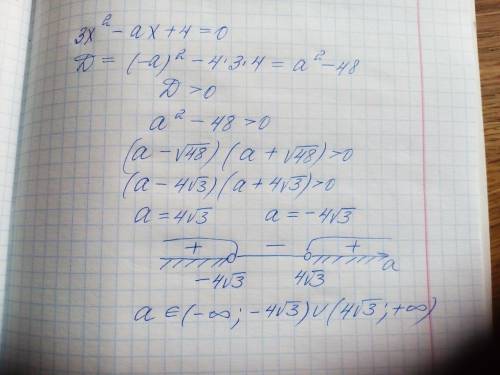 3x² - ax + 4 = 0
D = (-a)² - 4·3·4 = a² - 48
D > 0
a² - 48 > 0
(a - √48)(a + √48) > 0
(a - 4√3)(a + 4√3) > 0
a = 4√3 a = -4√3
+ - +
-4√3 4√3 a
a ∈ (-∞; -4√3) ∪ (4√3; +∞)